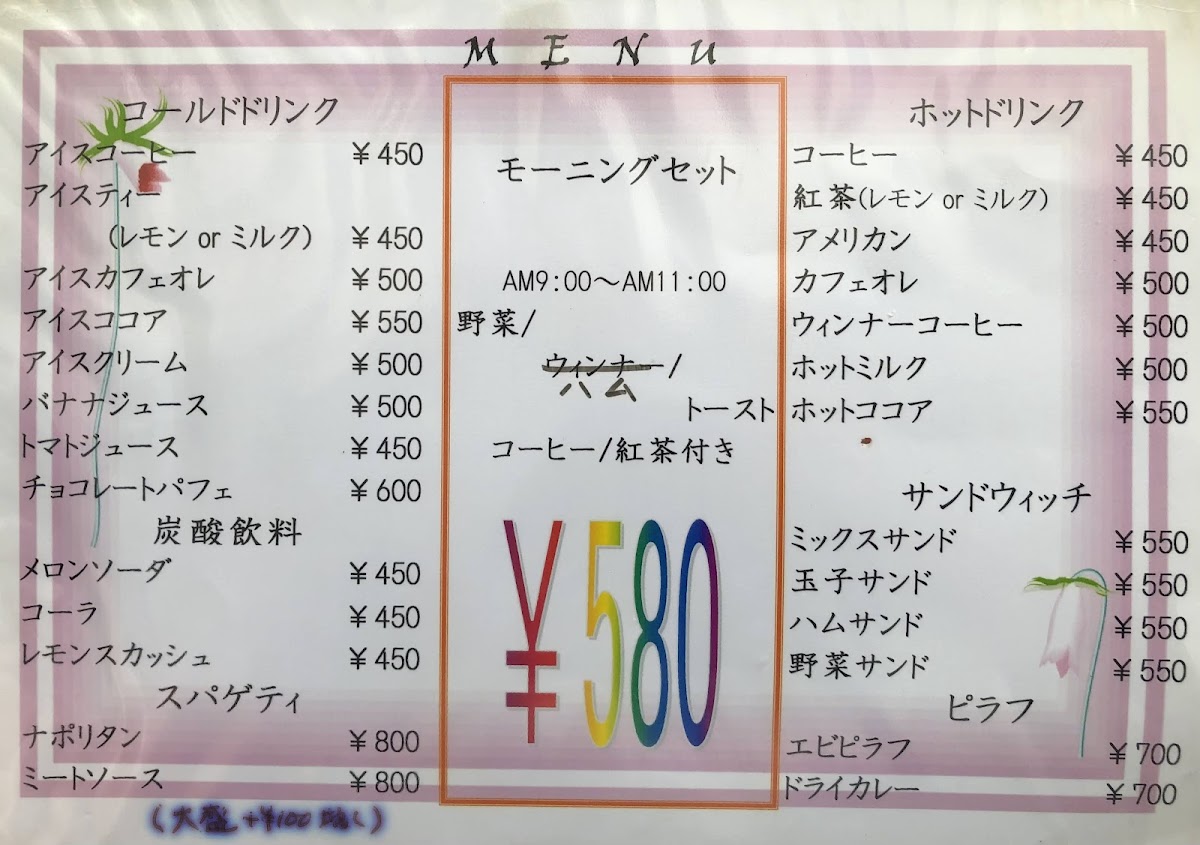 MENU
コールドドリンク
アイスコーヒー ￥450
アイスティー
(レモン or ミルク) ￥450
アイスカフェオレ ￥500
アイスココア ￥550
アイスクリーム ￥500
バナナジュース ￥500
トマトジュース ￥450
チョコレートパフェ ￥600
炭酸飲料
メロンソーダ ￥450
コーラ ￥450
レモンスカッシュ ￥450
スパゲティ
ナポリタン ￥800
ミートソース ￥800
(大盛 +¥100増し)
モーニングセット
AM9:00～AM11:00
野菜/
ウィンナー/
ハム
トースト
コーヒー/紅茶付き
￥580
ホットドリンク
コーヒー ￥450
紅茶(レモン or ミルク) ￥450
アメリカン ￥450
カフェオレ ￥500
ウィンナーコーヒー ￥500
ホットミルク ￥500
ホットココア ￥550
サンドウィッチ
ミックスサンド ￥550
玉子サンド ￥550
ハムサンド ￥550
野菜サンド ￥550
ピラフ
エビピラフ ￥700
ドライカレー ￥700